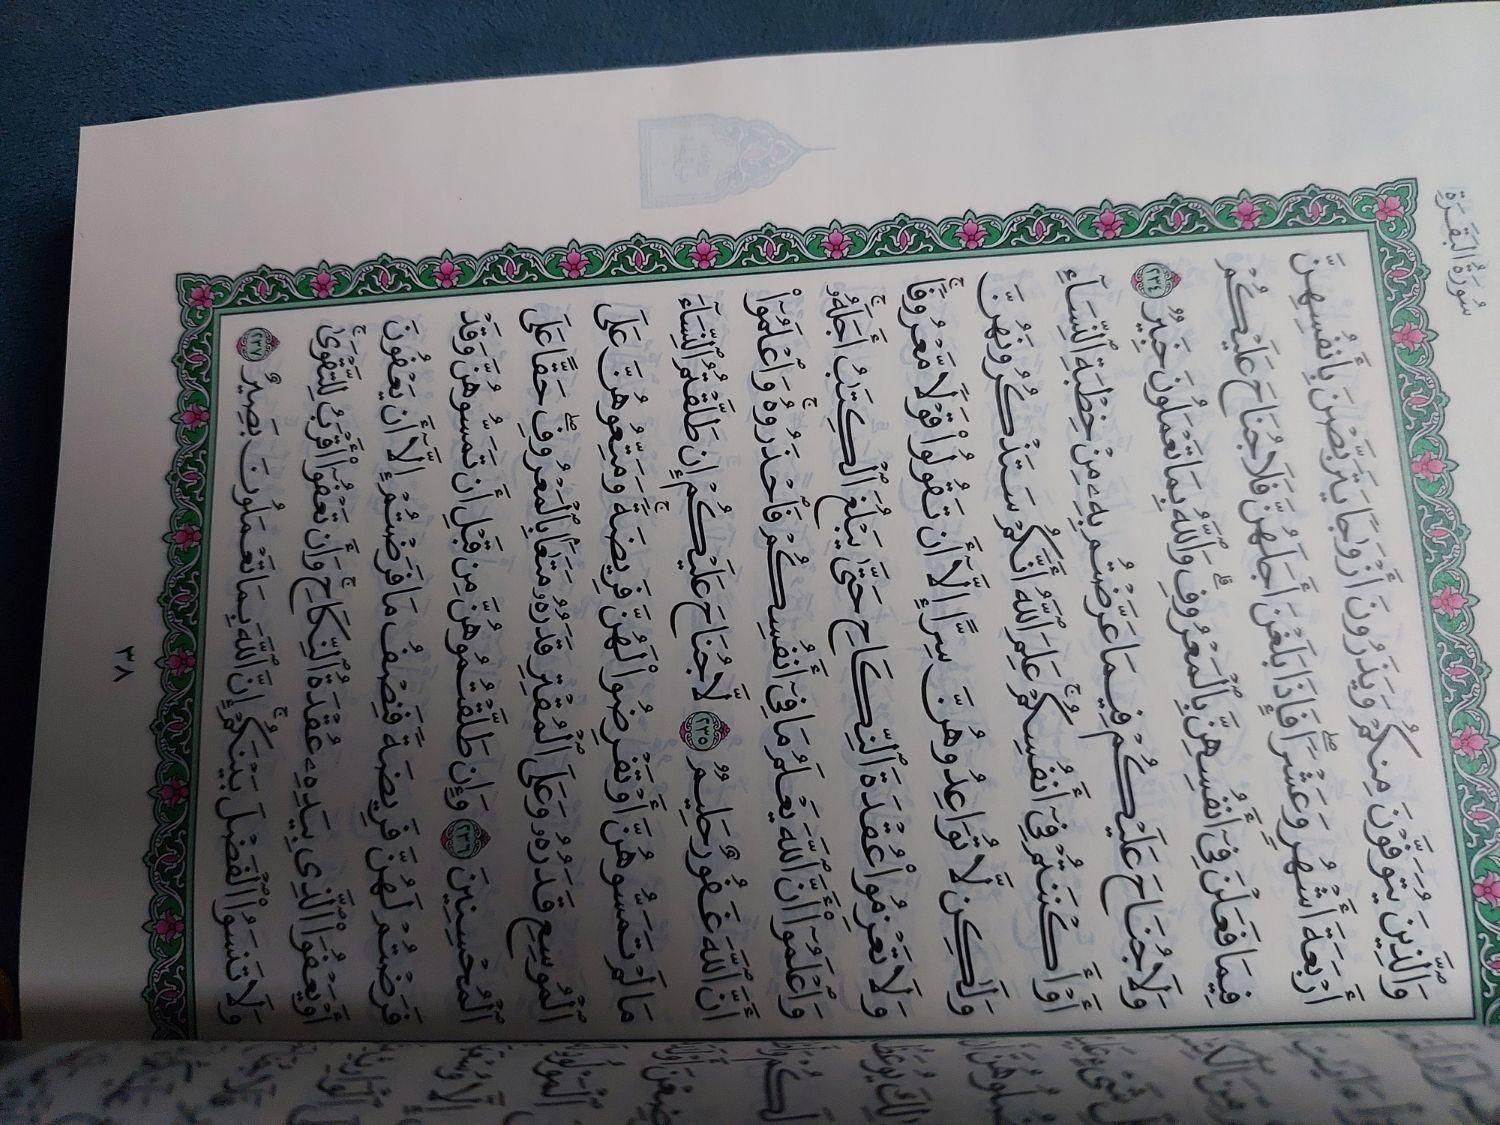 سُورَةُ البَقَرَةِ
وَٱلَّذِينَ يُتَوَفَّوْنَ مِنكُمْ وَيَذَرُونَ أَزْوَٰجًا يَتَرَبَّصْنَ بِأَنفُسِهِنَّ
أَرْبَعَةَ أَشْهُرٍ وَعَشْرًا ۖ فَإِذَا بَلَغْنَ أَجَلَهُنَّ فَلَا جُنَاحَ عَلَيْكُمْ
فِيمَا فَعَلْنَ فِىٓ أَنفُسِهِنَّ بِٱلْمَعْرُوفِ ۗ وَٱللَّهُ بِمَا تَعْمَلُونَ خَبِيرٌ ٢٣٤
وَلَا جُنَاحَ عَلَيْكُمْ فِيمَا عَرَّضْتُم بِهِۦ مِنْ خِطْبَةِ ٱلنِّسَآءِ
أَوْ أَكْنَنتُمْ فِىٓ أَنفُسِكُمْ ۚ عَلِمَ ٱللَّهُ أَنَّكُمْ سَتَذْكُرُونَهُنَّ
وَلَـٰكِن لَّا تُوَاعِدُوهُنَّ سِرًّا إِلَّآ أَن تَقُولُوا۟ قَوْلًا مَّعْرُوفًا ۚ
وَلَا تَعْزِمُوا۟ عُقْدَةَ ٱلنِّكَاحِ حَتَّىٰ يَبْلُغَ ٱلْكِتَـٰبُ أَجَلَهُۥ ۚ
وَٱعْلَمُوٓا۟ أَنَّ ٱللَّهَ يَعْلَمُ مَا فِىٓ أَنفُسِكُمْ فَٱحْذَرُوهُ ۚ وَٱعْلَمُوٓا۟
أَنَّ ٱللَّهَ غَفُورٌ حَلِيمٌ ٢٣٥ لَّا جُنَاحَ عَلَيْكُمْ إِن طَلَّقْتُمُ ٱلنِّسَآءَ
مَا لَمْ تَمَسُّوهُنَّ أَوْ تَفْرِضُوا۟ لَهُنَّ فَرِيضَةً ۚ وَمَتِّعُوهُنَّ عَلَى
ٱلْمُوسِعِ قَدَرُهُۥ وَعَلَى ٱلْمُقْتِرِ قَدَرُهُۥ مَتَـٰعًۢا بِٱلْمَعْرُوفِ ۖ حَقًّا عَلَى
ٱلْمُحْسِنِينَ ٢٣٦ وَإِن طَلَّقْتُمُوهُنَّ مِن قَبْلِ أَن تَمَسُّوهُنَّ وَقَدْ
فَرَضْتُمْ لَهُنَّ فَرِيضَةً فَنِصْفُ مَا فَرَضْتُمْ إِلَّآ أَن يَعْفُونَ
أَوْ يَعْفُوَا۟ ٱلَّذِى بِيَدِهِۦ عُقْدَةُ ٱلنِّكَاحِ ۚ وَأَن تَعْفُوٓا۟ أَقْرَبُ لِلتَّقْوَىٰ ۚ
وَلَا تَنسَوُا۟ ٱلْفَضْلَ بَيْنَكُمْ ۚ إِنَّ ٱللَّهَ بِمَا تَعْمَلُونَ بَصِيرٌ ٢٣٧
٣٨